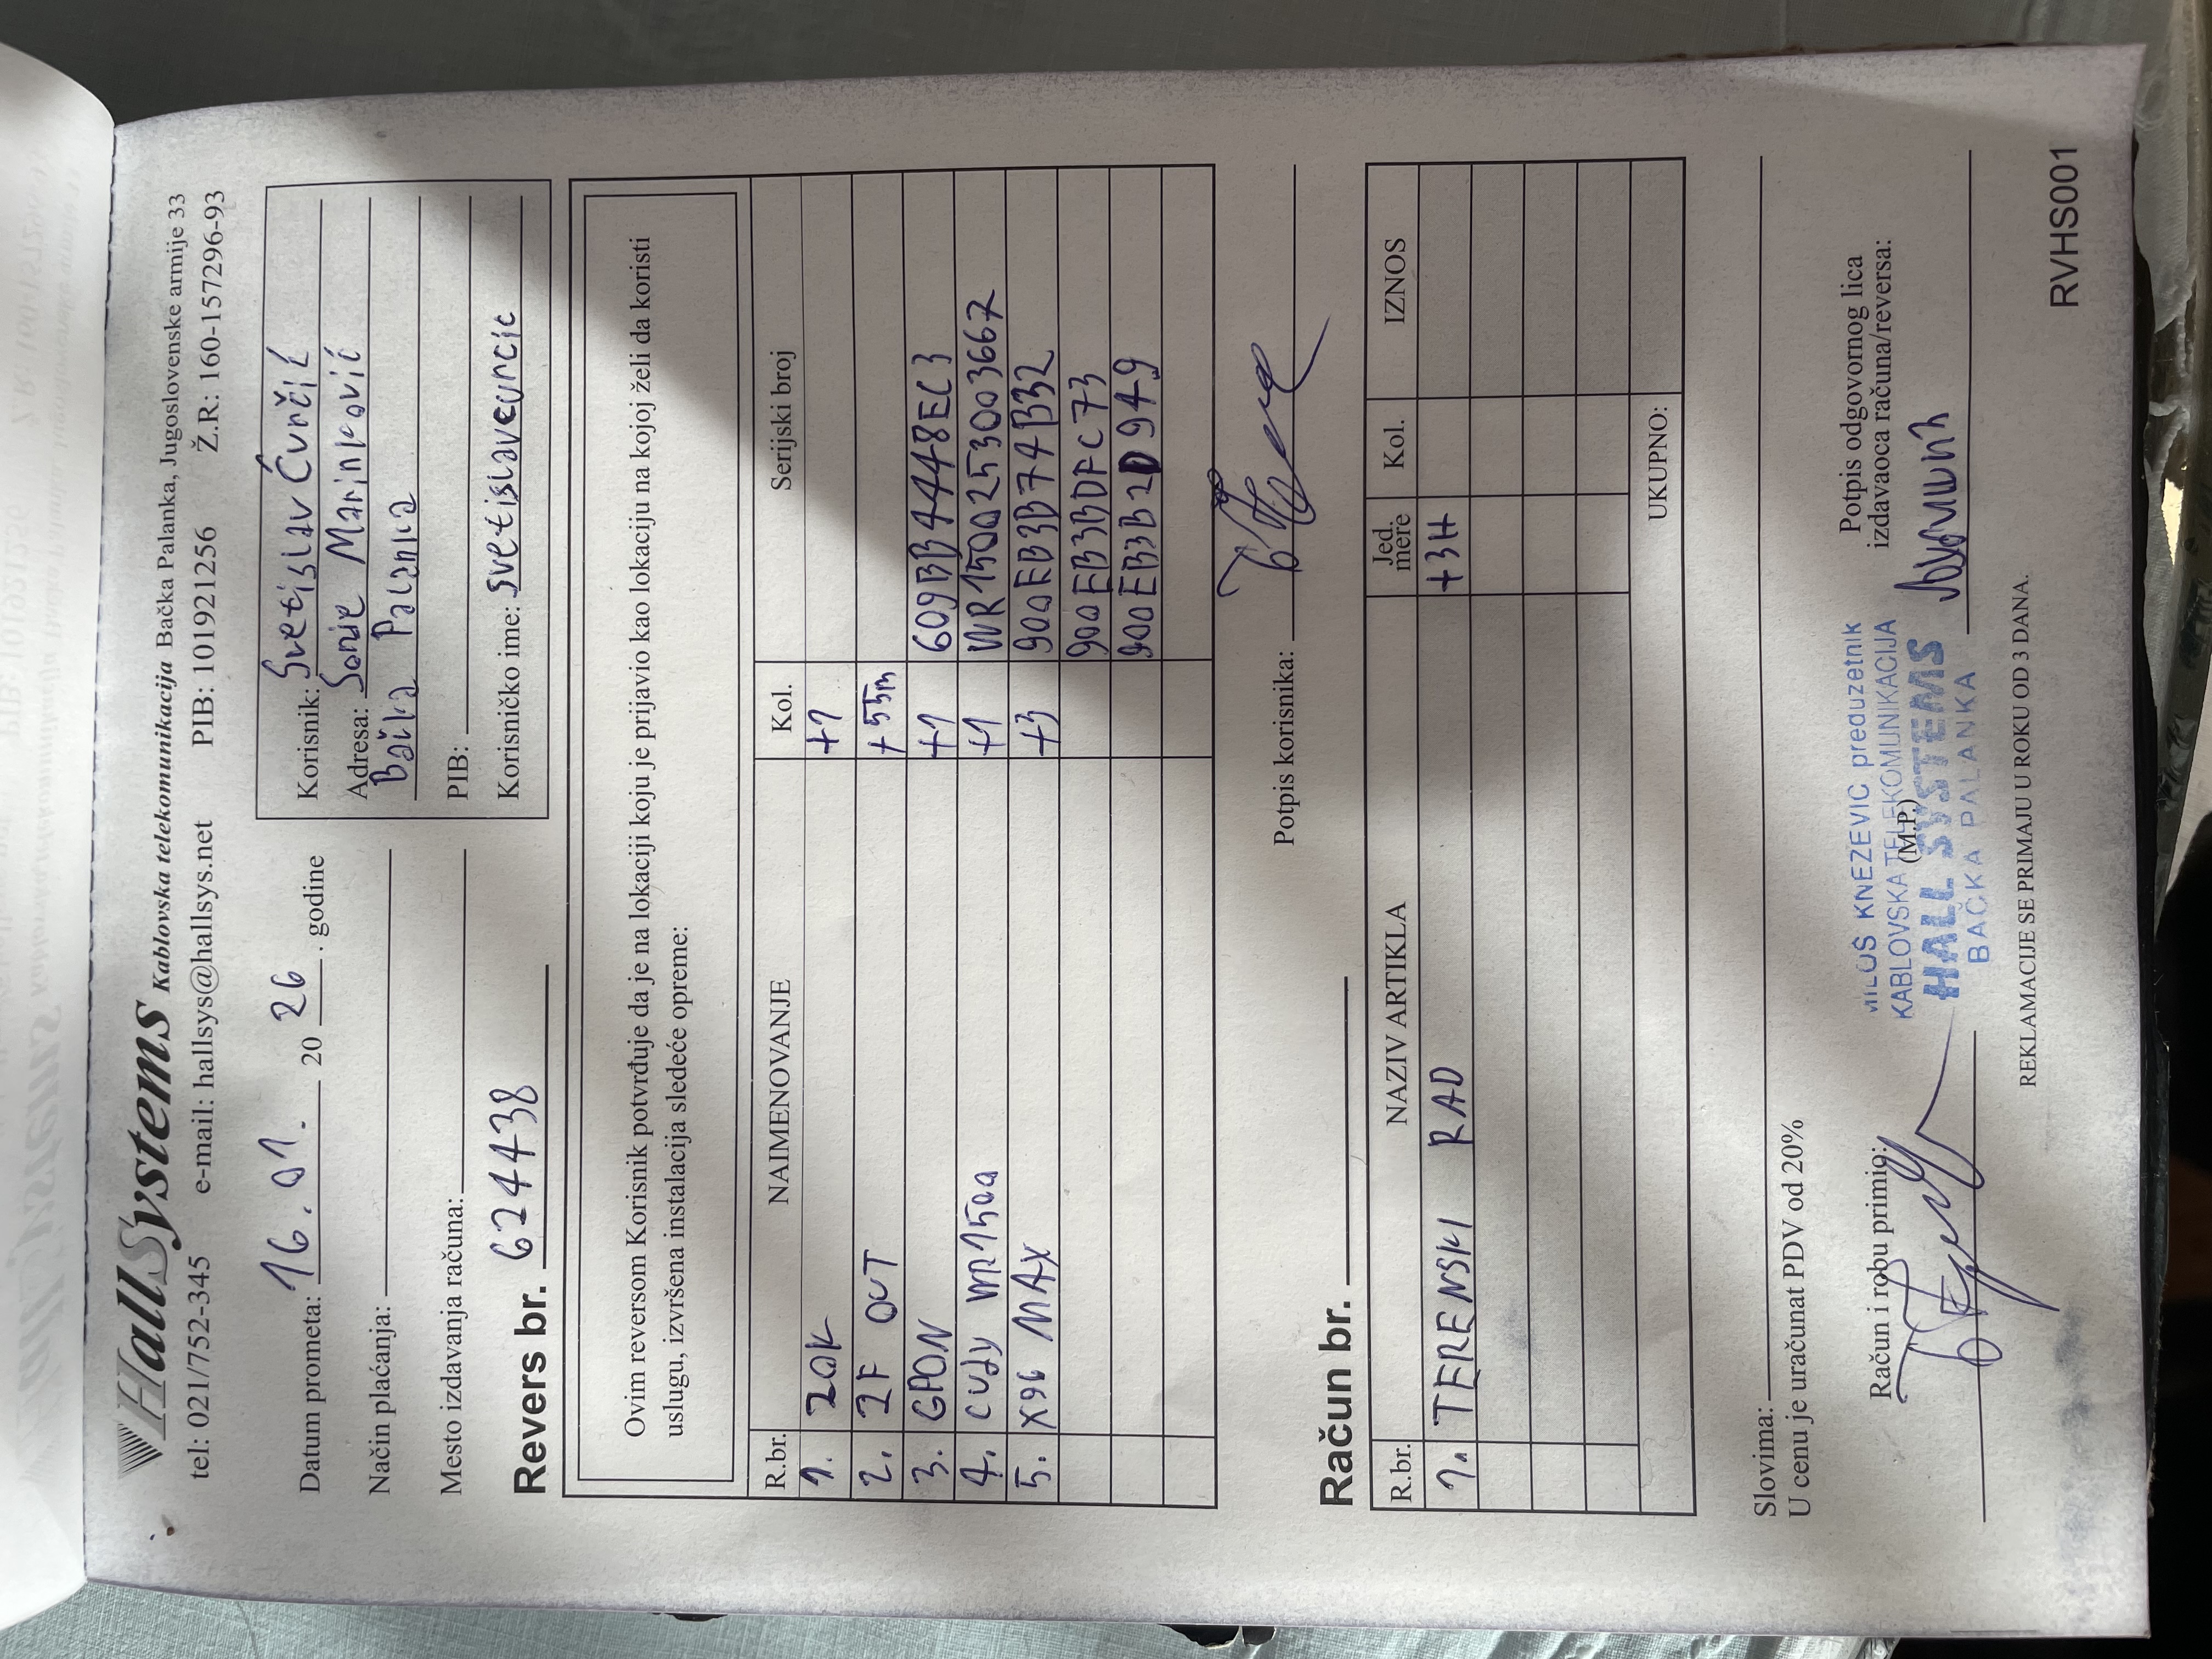 HallSystems Kablovska telekomunikacija Bačka Palanka, Jugoslovenske armije 33
tel: 021/752-345 e-mail: hallsys@hallsys.net PIB: 101921256 Ž.R: 160-157296-93
Datum prometa: 16.01. 20 26 . godine
Način plaćanja:
Mesto izdavanja računa:
Korisnik: Svetislav Čurčić
Adresa: Sonje Marinković
Bačka Palanka
PIB:
Korisničko ime: svetislavcurcic
Revers br. 624438
Ovim reversom Korisnik potvrđuje da je na lokaciji koju je prijavio kao lokaciju na kojoj želi da koristi
uslugu, izvršena instalacija sledeće opreme:
R.br. NAIMENOVANJE Kol. Serijski broj
1. ZOK +1
2. 2F OUT +55m
3. GPON +1 609BB4448EC3
4. cudy WR1500 +1 WR1500253003667
5. X96 MAX +3 900EB3B74B32
900EB3BDFC73
900EB3B2D949
Potpis korisnika:
Račun br.
R.br. NAZIV ARTIKLA Jed. mere Kol. IZNOS
1. TERENSKI RAD +3H
UKUPNO:
Slovima:
U cenu je uračunat PDV od 20%
Račun i robu primio:
(M.P.)
MILOŠ KNEZEVIC preduzetnik
KABLOVSKA TELEKOMUNIKACIJA
HALL SYSTEMS
BAČKA PALANKA
Potpis odgovornog lica
izdavaoca računa/reversa:
REKLAMACIJE SE PRIMAJU U ROKU OD 3 DANA.
RVHS001